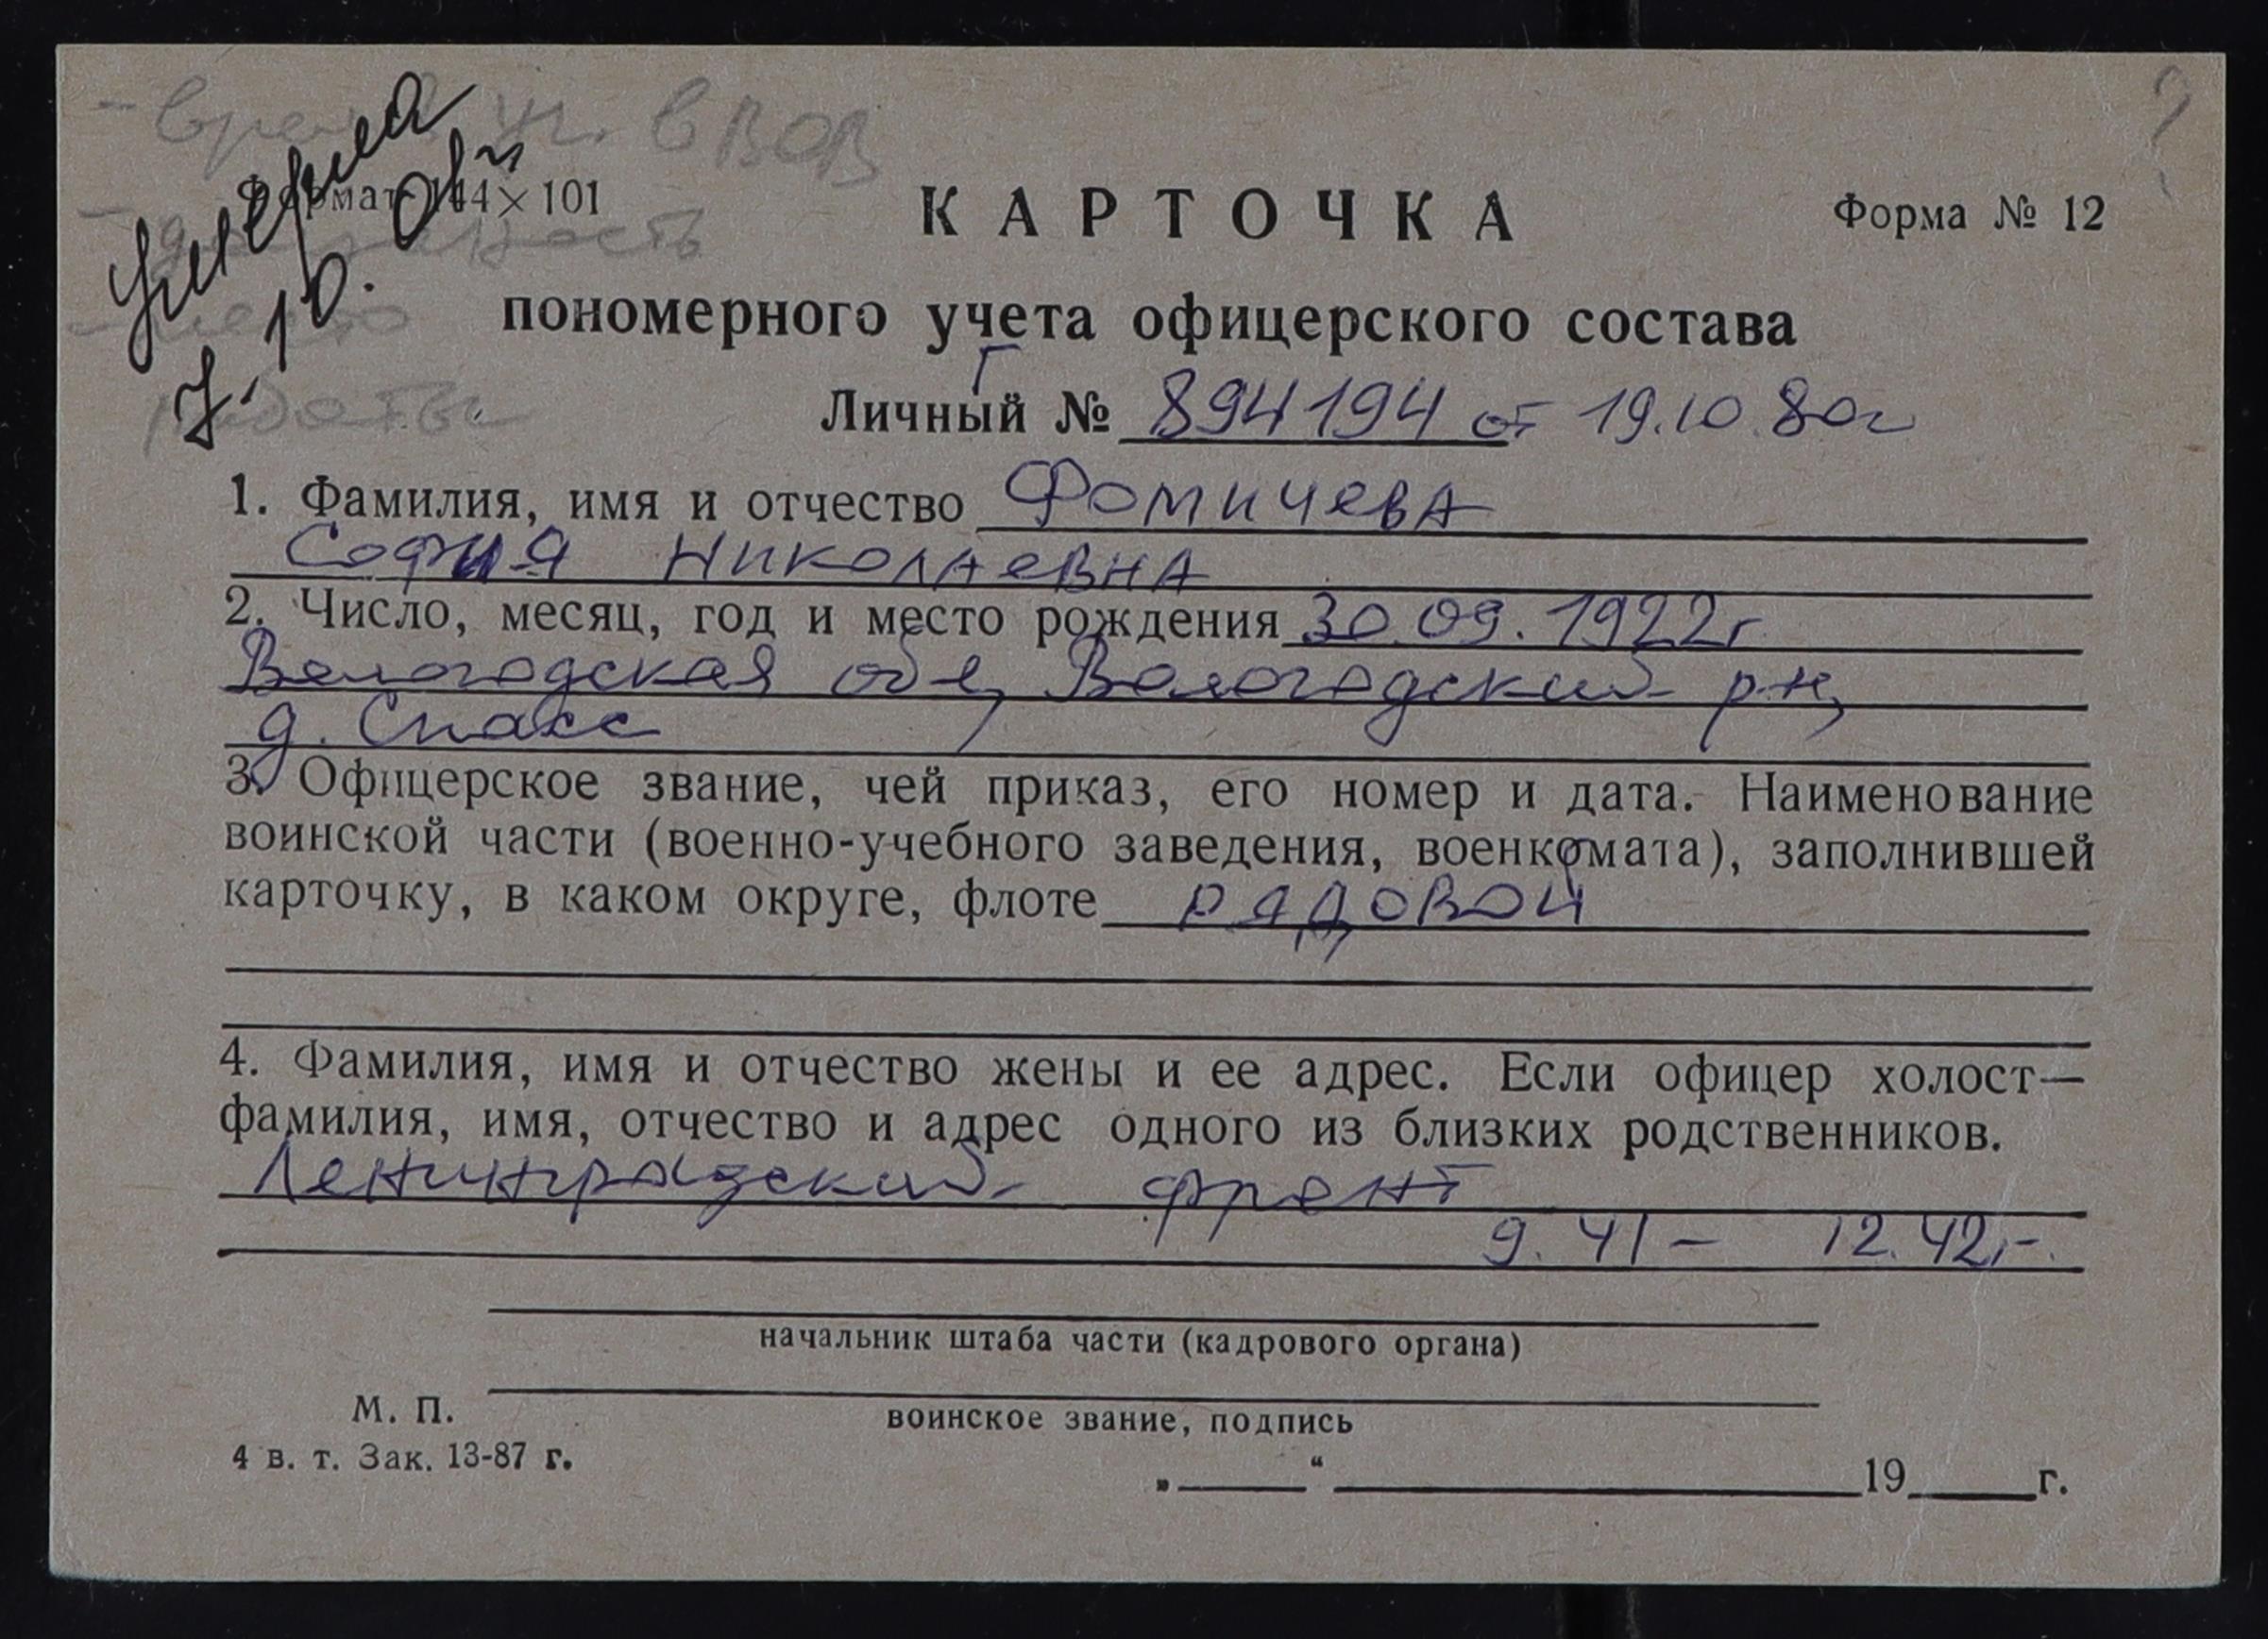 - время уч. в ВОВ
Умерла
7.10.01г
Формат 144×101
- должность
- место
работы
КАРТОЧКА
Форма № 12
пономерного учета офицерского состава
Г
Личный № 894194 от 19.10.80г
1. Фамилия, имя и отчество Фомичева
София Николаевна
2. Число, месяц, год и место рождения 30.09.1922г
Вологодская обл, Вологодский р-н,
д. Спасс
3. Офицерское звание, чей приказ, его номер и дата. Наименование
воинской части (военно-учебного заведения, военкомата), заполнившей
карточку, в каком округе, флоте рядовой
4. Фамилия, имя и отчество жены и ее адрес. Если офицер холост—
фамилия, имя, отчество и адрес одного из близких родственников.
Ленинградский фронт
9.41 - 12.42г.
начальник штаба части (кадрового органа)
М. П.
воинское звание, подпись
4 в. т. Зак. 13-87 г.
„ “ 19 г.